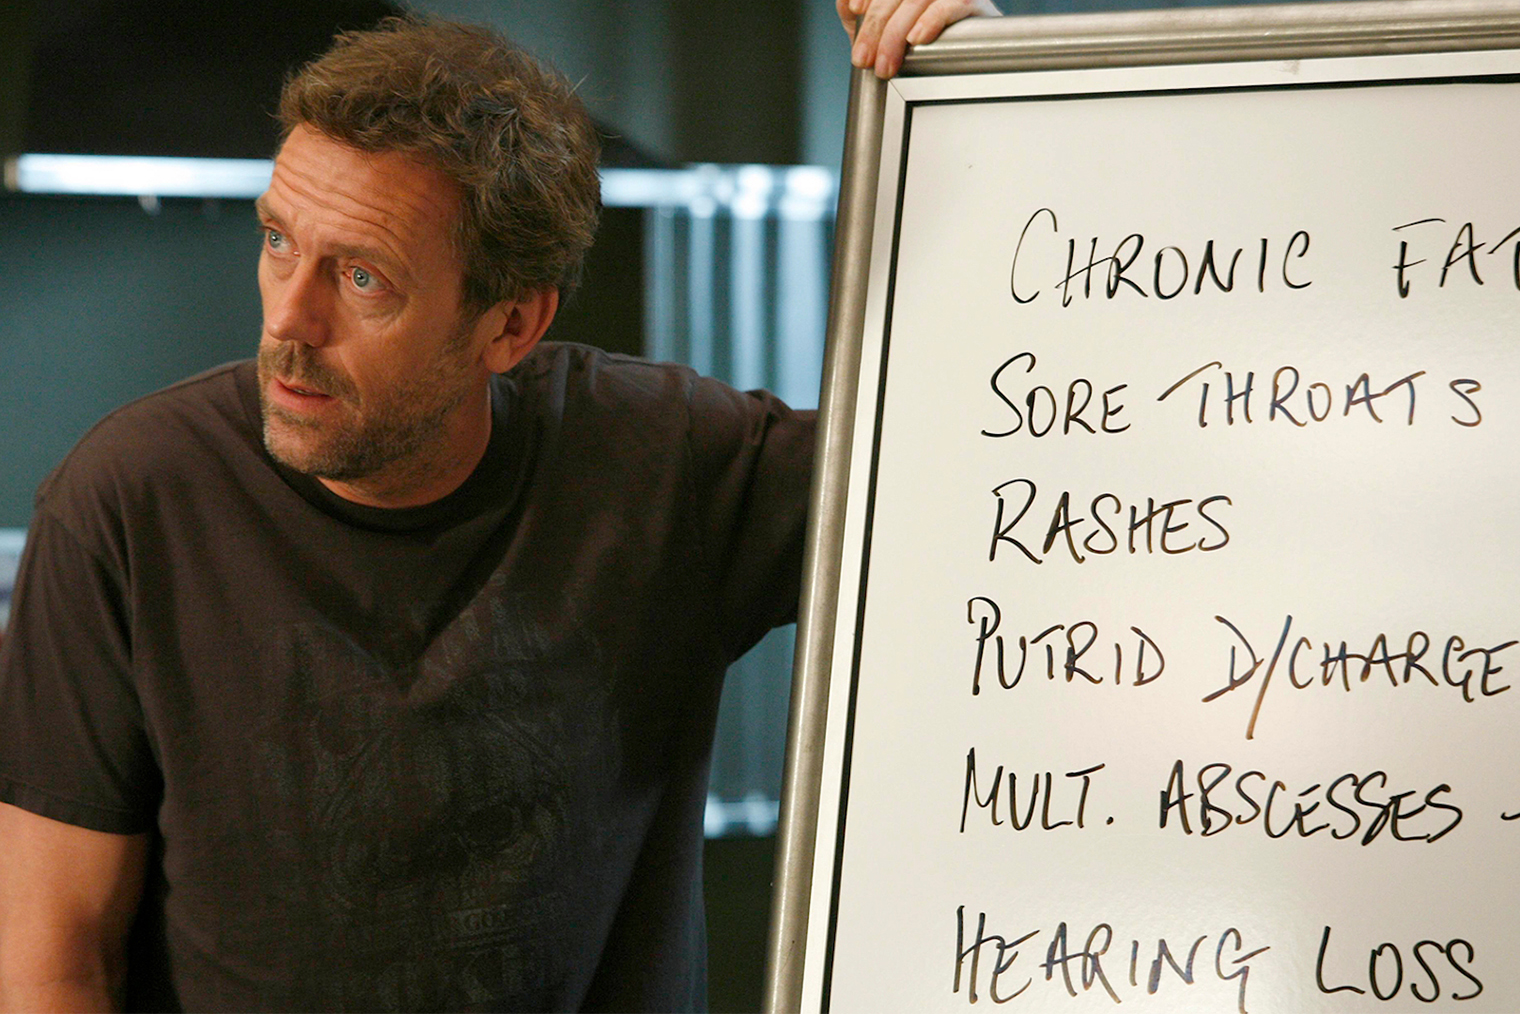 CHRONIC FAT
SORE THROATS
RASHES
PUTRID D/CHARGE
MULT. ABSCESSES -
HEARING LOSS